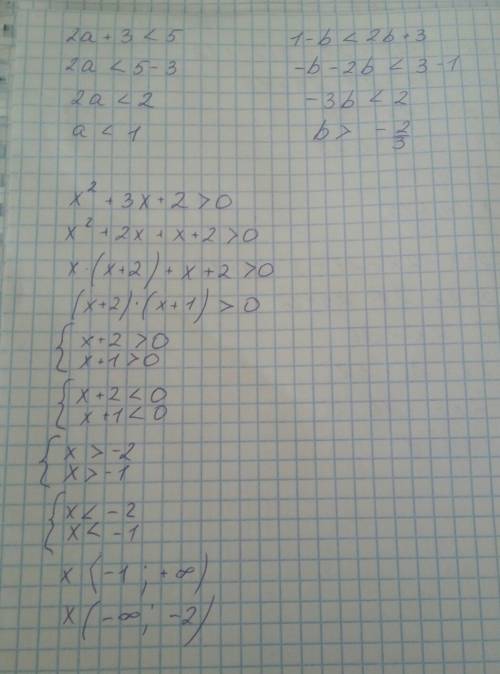 2a + 3 < 5
2a < 5 - 3
2a < 2
a < 1
1 - b < 2b + 3
-b - 2b < 3 - 1
-3b < 2
b > -2/3
x² + 3x + 2 > 0
x² + 2x + x + 2 > 0
x · (x+2) + x + 2 > 0
(x+2) · (x+1) > 0
{ x+2 > 0
x+1 > 0
{ x+2 < 0
x+1 < 0
{ x > -2
x > -1
{ x < -2
x < -1
x (-1 ; +∞)
x (-∞ ; -2)